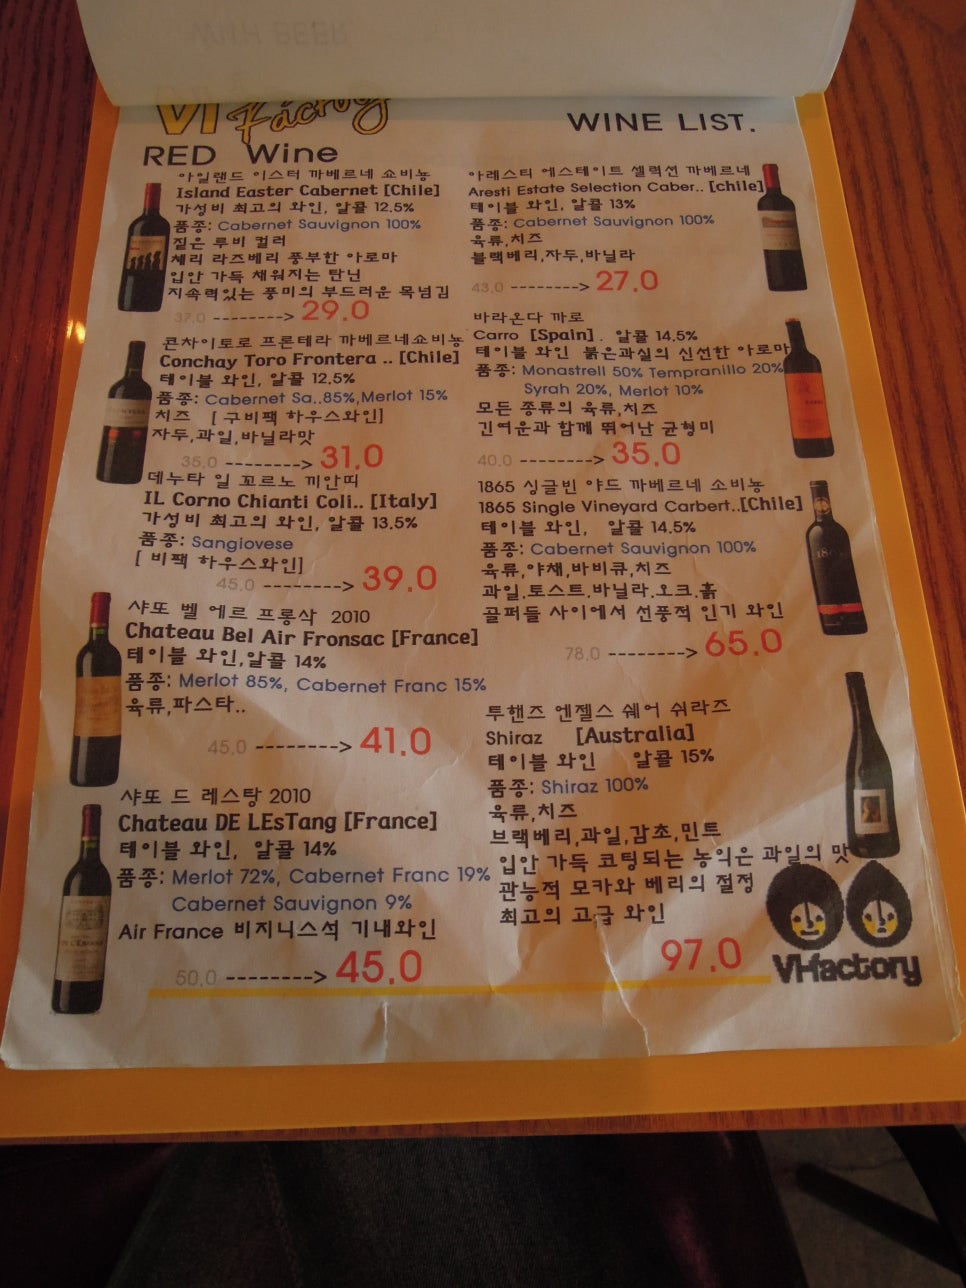 VI Factory
WINE LIST.
RED Wine
아일랜드 이스터 까베르네 쇼비뇽
Island Easter Cabernet [Chile]
가성비 최고의 와인, 알콜 12.5%
품종: Cabernet Sauvignon 100%
짙은 루비 컬러
체리 라즈베리 풍부한 아로마
입안 가득 채워지는 탄닌
지속력있는 풍미의 부드러운 목넘김
37.0 --------> 29.0
콘차이토로 프론테라 까베르네쇼비뇽
Conchay Toro Frontera .. [Chile]
테이블 와인, 알콜 12.5%
품종: Cabernet Sa..85%,Merlot 15%
치즈 [ 구비팩 하우스와인]
자두,과일,바닐라맛
35.0 --------> 31.0
데누타 일 꼬르노 끼안띠
IL Corno Chianti Coli.. [Italy]
가성비 최고의 와인, 알콜 13.5%
품종: Sangiovese
[ 비팩 하우스와인]
45.0 --------> 39.0
샤또 벨 에르 프롱삭 2010
Chateau Bel Air Fronsac [France]
테이블 와인,알콜 14%
품종: Merlot 85%, Cabernet Franc 15%
육류,파스타..
45.0 --------> 41.0
샤또 드 레스탕 2010
Chateau DE LEsTang [France]
테이블 와인, 알콜 14%
품종: Merlot 72%, Cabernet Franc 19%
Cabernet Sauvignon 9%
Air France 비지니스석 기내와인
50.0 --------> 45.0
아레스티 에스테이트 셀럭션 까베르네
Aresti Estate Selection Caber.. [chile]
테이블 와인, 알콜 13%
품종: Cabernet Sauvignon 100%
육류,치즈
블랙베리,자두,바닐라
43.0 --------> 27.0
바라온다 까로
Carro [Spain] . 알콜 14.5%
테이블 와인 붉은과실의 신선한 아로마
품종: Monastrell 50% Tempranillo 20%
Syrah 20%, Merlot 10%
모든 종류의 육류,치즈
긴여운과 함께 뛰어난 균형미
40.0 --------> 35.0
1865 싱글빈 야드 까베르네 소비뇽
1865 Single Vineyard Carbert..[Chile]
테이블 와인, 알콜 14.5%
품종: Cabernet Sauvignon 100%
육류,야채,바비큐,치즈
과일.토스트.바닐라.오크.흙
골퍼들 사이에서 선풍적 인기 와인
78.0 --------> 65.0
투핸즈 엔젤스 쉐어 쉬라즈
Shiraz [Australia]
테이블 와인 알콜 15%
품종: Shiraz 100%
육류,치즈
브랙베리,과일,감초,민트
입안 가득 코팅되는 농익은 과일의 맛
관능적 모카와 베리의 절정
최고의 고급 와인
97.0
VI-factory